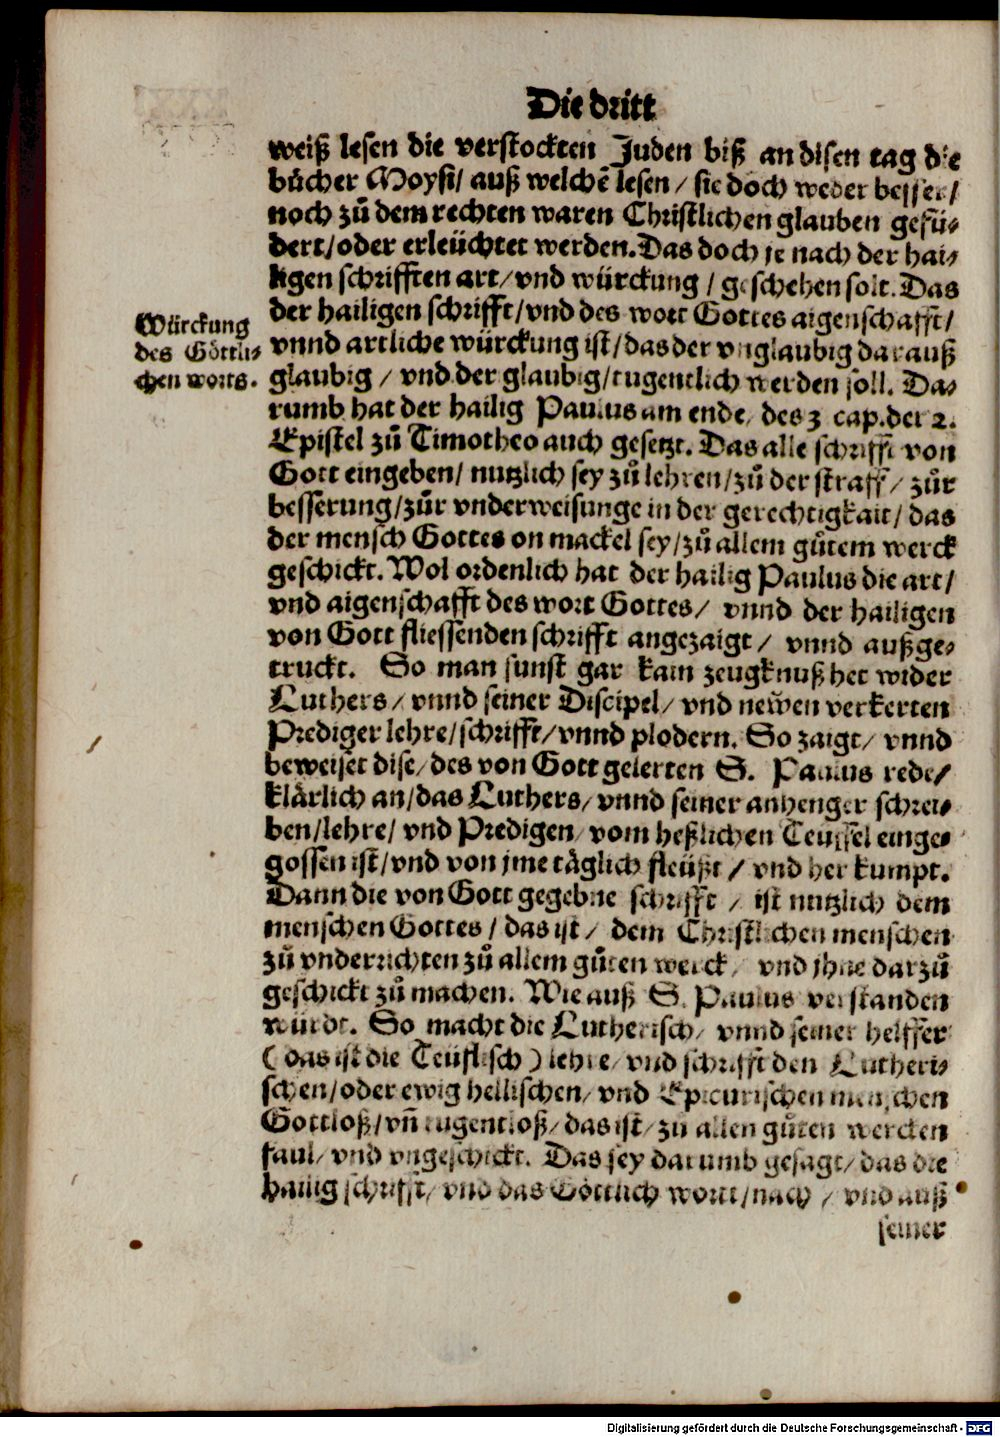 Die dritt
weiß lesen die verstockten Juden biß an disen tag die
bücher Moysi/ auß welchē lesen / sie doch weder besser/
noch zů dem rechten waren Christlichen glauben gefü-
dert/oder erleüchtet werden. Das doch je nach der hai-
ligen schrifften art/ vnd würckung / geschehen solt. Das
der hailigen schrifft/vnd des wort Gottes aigenschafft/
vnnd artliche würckung ist/das der vnglaubig darauß
glaubig / vnd der glaubig/tugentlich werden soll. Da-
rumb hat der hailig Paulus am ende/ des 3 cap. der 2.
Epistel zů Timotheo auch gesetzt. Das alle schrifft von
Gott eingeben/ nutzlich sey zů lehren/zů der straff/ zůr
besserung/zůr vnderweisunge in der gerechtigkait/ das
der mensch Gottes on mackel sey/zů allem gůtem werck
geschickt. Wol ordenlich hat der hailig Paulus die art/
vnd aigenschafft des wort Gottes/ vnnd der hailigen
von Gott fliessenden schrifft angezaigt/ vnnd außge-
truckt. So man sunst gar kain zeugknuß het wider
Luthers/ vnnd seiner Discipel/ vnd newen verkerten
Prediger lehre/schrifft/vnnd plodern. So zaigt/ vnnd
beweiset dise/des von Gott gelerten S. Paulus rede/
klärlich an/das Luthers/ vnnd seiner anhenger schrei-
ben/lehre/ vnd Predigen/ vom heßlichen Teuffel einge-
gossen ist/vnd von jme täglich fleüßt / vnd her kumpt.
Dann die von Gott gegebne schrifft / ist nutzlich dem
menschen Gottes / das ist/ dem Christlichen menschen
zů vnderrichten zů allem gůten werck/ vnd jhne darzů
geschickt zů machen. Wie auß S. Paulus verstanden
würdt. So macht die Lutherisch/ vnnd seiner helffer
(das ist die Teüflisch) lehre/ vnd schrifft den Lutheri-
schen/oder ewig hellischen/ vnd Epicurischen menschen
Gottloß/vñ tugentloß/das ist/ zu allen gůten wercken
faul/ vnd vngeschickt. Das sey darumb gesagt/das die
hailig schrifft/ vnd das Göttlich wort/nach / vnd auß
seiner
Würckung
des Göttli-
chen worts.
Digitalisierung gefördert durch die Deutsche Forschungsgemeinschaft - DFG